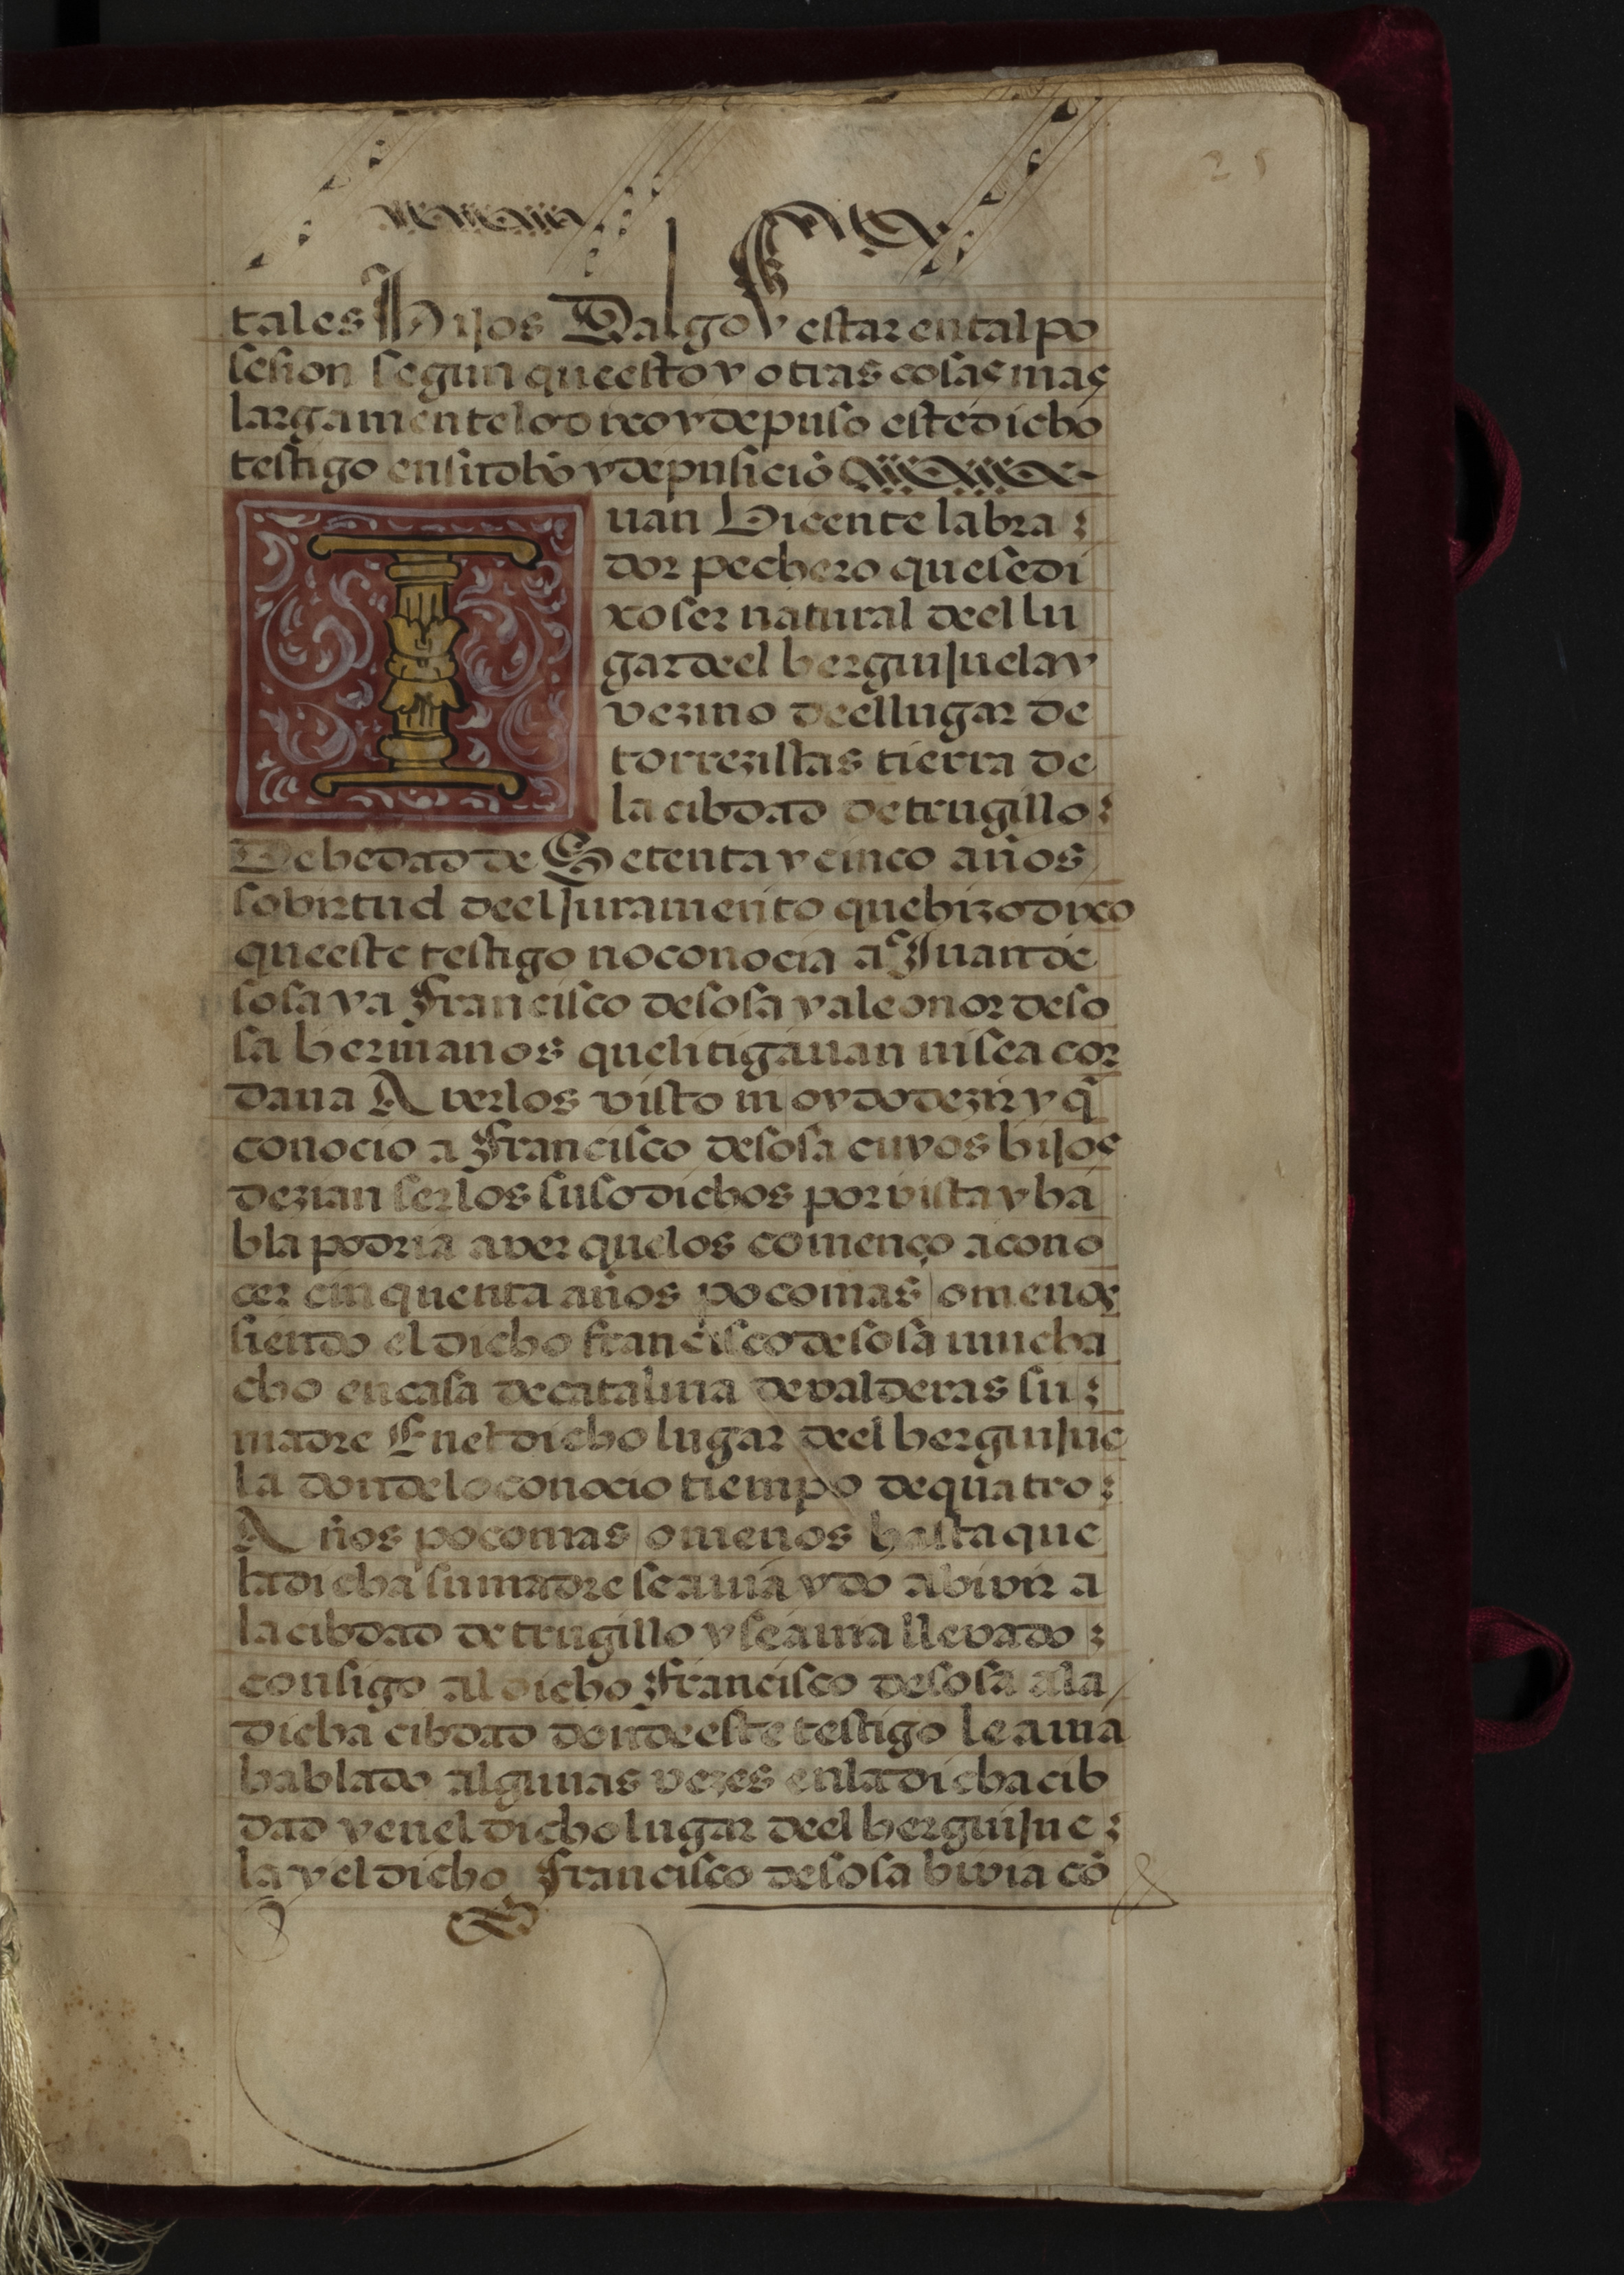 25
tales Hijos Dalgo y estar en tal po
sesion segun que esto y otras cosas mas
largamente lo dixo y depuso este dicho
testigo en su dcho y depusiciõ
Iuan Vicente labra:
dor pechero que se di
xo ser natural de el lu
gar de el berguijuela y
vezino de el lugar de
torrezillas tierra de
la cibdad de trugillo:
De hedad de Setenta y cinco años
so birtud de el juramento que hizo dixo
que este testigo no conocia a Juan de
sosa y a Francisco de sosa y a leonor de so
sa hermanos que litigauan ni se acor
daua Averlos visto ni oydo dezir y q̃
conocio a Francisco de sosa cuyos hijos
dezian ser los susodichos por vista y ha
bla podria aver que los començo a cono
cer cinquenta años poco mas o menos
siendo el dicho francisco de sosa mucha
cho en casa de catalina de valderas su:
madre En el dicho lugar de el berguijue
la donde lo conocio tiempo de quatro:
Años poco mas o menos hasta que
la dicha su madre se auia ydo a bivir a
la cibdad de trugillo y se auia llevado:
consigo al dicho Francisco de sosa a la
dicha cibdad donde este testigo le auia
hablado algunas vezes en la dicha cib
dad y en el dicho lugar de el berguijue:
la y el dicho Francisco de sosa bivia cõ